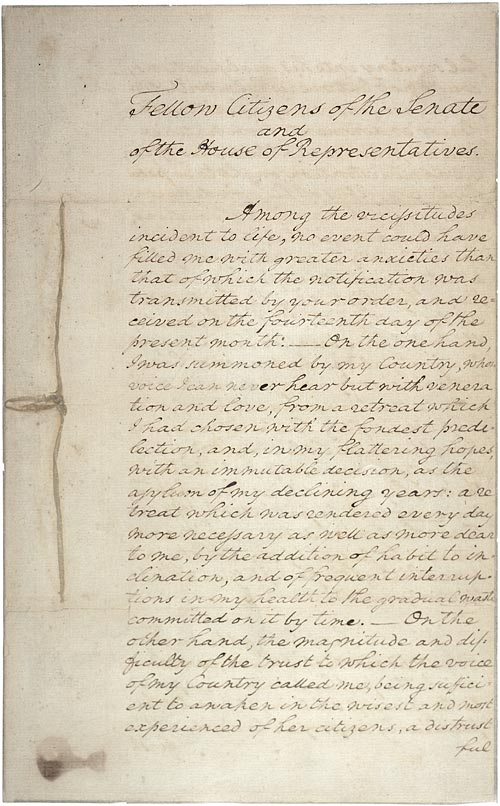 Fellow Citizens of the Senate
and
of the House of Representatives.
Among the vicissitudes
incident to life, no event could have
filled me with greater anxieties than
that of which the notification was
transmitted by your order, and re-
ceived on the fourteenth day of the
present month: — On the one hand,
I was summoned by my Country, whose
voice I can never hear but with venera
tion and love, from a retreat which
I had chosen with the fondest predi-
lection, and, in my flattering hopes,
with an immutable decision, as the
asylum of my declining years: a re
treat which was rendered every day
more necessary as well as more dear
to me, by the addition of habit to in-
clination, and of frequent interrup-
tions in my health to the gradual waste
committed on it by time. — On the
other hand, the magnitude and dif-
ficulty of the trust to which the voice
of my Country called me, being suffici-
ent to awaken in the wisest and most
experienced of her citizens, a distrust
ful